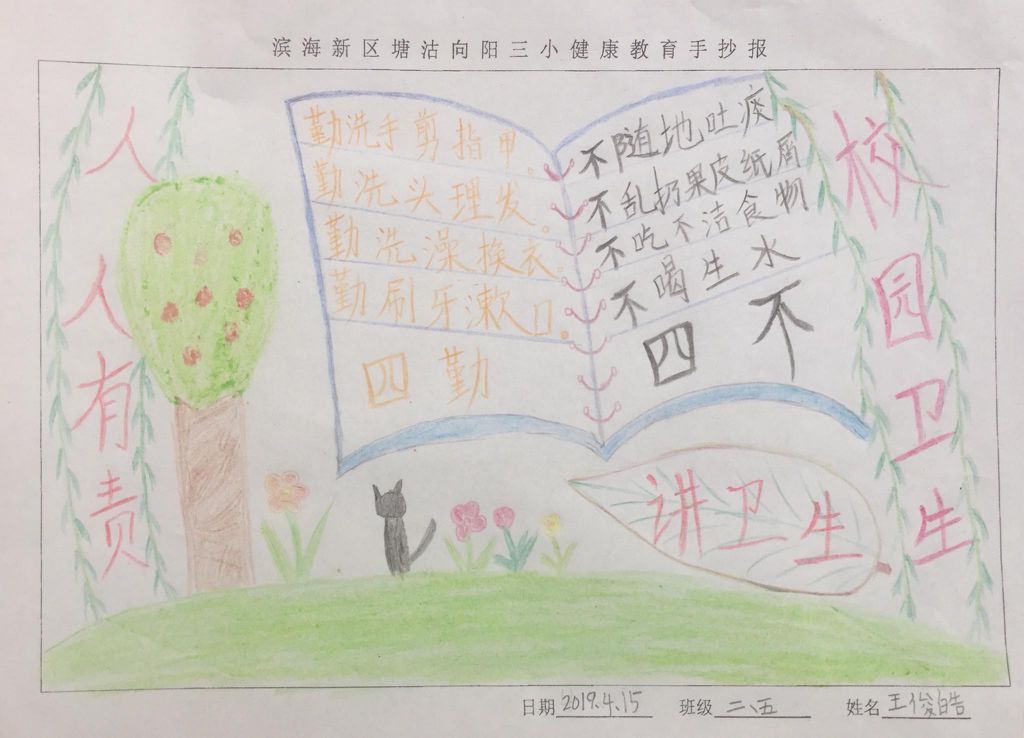 滨海新区塘沽向阳三小健康教育手抄报
校园卫生
人人有责
勤洗手剪指甲。
勤洗头理发。
勤洗澡换衣。
勤刷牙漱口。
四勤
不随地吐痰
不乱扔果皮纸屑
不吃不洁食物
不喝生水
四不
讲卫生
日期2019.4.15 班级二、五 姓名王俊皓